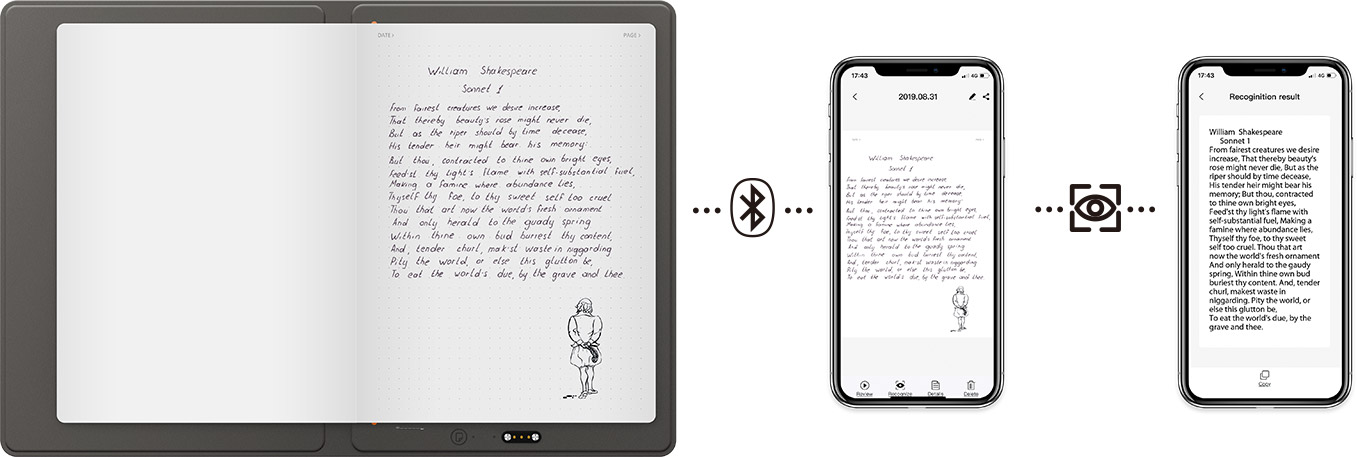 DATE
PAGE
William Shakespeare
Sonnet 1
From fairest creatures we desire increase,
That thereby beauty's rose might never die,
But as the riper should by time decease,
His tender heir might bear his memory:
But thou, contracted to thine own bright eyes,
Feed'st thy light's flame with self-substantial fuel,
Making a famine where abundance lies,
Thyself thy foe, to thy sweet self too cruel
Thou that art now the world's fresh ornament
And only herald to the guady spring
Within thine own bud buriest thy content,
And, tender churl, mak'st waste in niggarding
Pity the world, or else this glutton be,
To eat the world's due, by the grave and thee.
17:43
4G
2019.08.31
William Shakespeare
Sonnet 1
From fairest creatures we desire increase,
That thereby beauty's rose might never die,
But as the riper should by time decease,
His tender heir might bear his memory:
But thou, contracted to thine own bright eyes,
Feed'st thy light's flame with self-substantial fuel,
Making a famine where abundance lies,
Thyself thy foe, to thy sweet self too cruel
Thou that art now the world's fresh ornament
And only herald to the guady spring
Within thine own bud buriest thy content,
And, tender churl, mak'st waste in niggarding
Pity the world, or else this glutton be,
To eat the world's due, by the grave and thee.
Review
Recognize
Details
Delete
17:43
4G
Recoginition result
William Shakespeare
Sonnet 1
From fairest creatures we desire
increase, That thereby beauty's
rose might never die, But as the
riper should by time decease,
His tender heir might bear his
memory; But thou, contracted
to thine own bright eyes,
Feed'st thy light's flame with
self-substantial fuel, Making a
famine where abundance lies,
Thyself thy foe, to thy sweet
self too cruel. Thou that art
now the world's fresh ornament
And only herald to the gaudy
spring, Within thine own bud
buriest thy content. And, tender
churl, makest waste in
niggarding. Pity the world, or
else this glutton be,
To eat the world's due, by the
grave and thee.
Copy